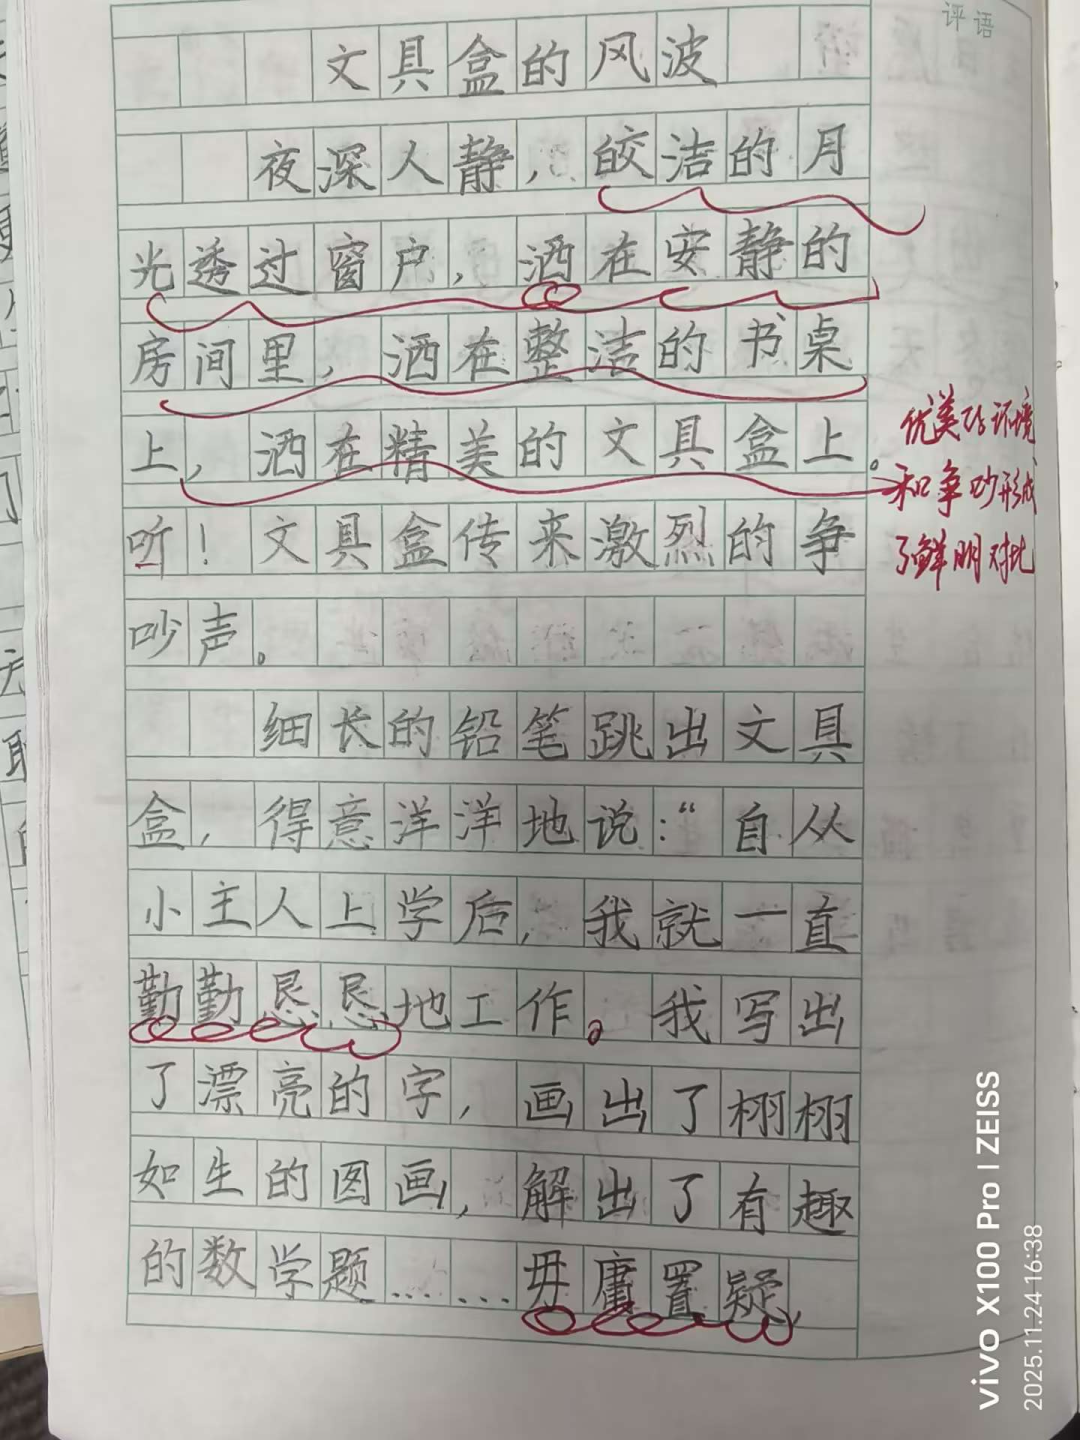 评语
文具盒的风波
夜深人静，皎洁的月
光透过窗户，洒在安静的
房间里，洒在整洁的书桌
上，洒在精美的文具盒上。
听！文具盒传来激烈的争
吵声。
细长的铅笔跳出文具
盒，得意洋洋地说：“自从
小主人上学后，我就一直
勤勤恳恳地工作。我写出
了漂亮的字，画出了栩栩
如生的图画，解出了有趣
的数学题……毋庸置疑，
优美的环境
和争吵形成
了鲜明对比
vivo X100 Pro | ZEISS
2025.11.24 16:38